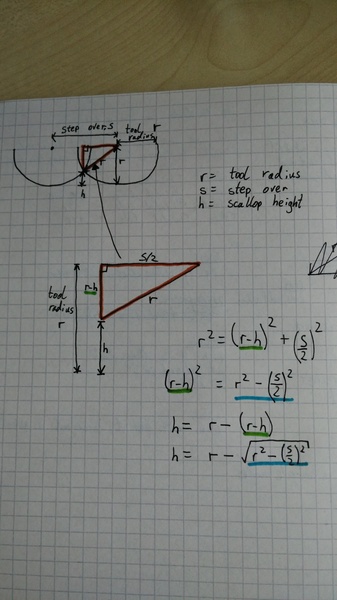 step over, s tool radius r
r
r
h
r = tool radius
s = step over
h = scallop height
s/2
tool radius r
r-h
r
h
r² = (r-h)² + (s/2)²
(r-h)² = r² - (s/2)²
h = r - (r-h)
h = r - √(r² - (s/2)²)